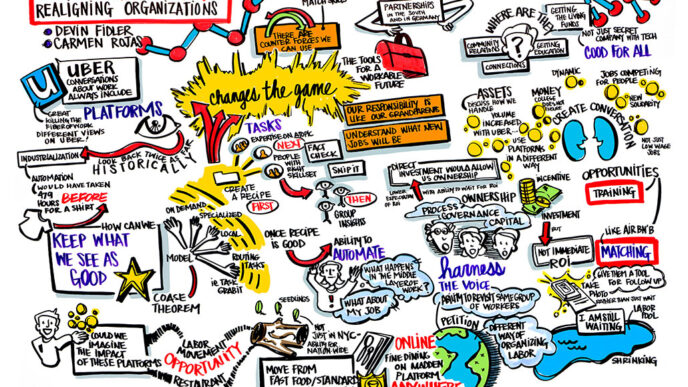 REALIGNING ORGANIZATIONS
DEVIN FIDLER
CARMEN ROJAS
UBER
CONVERSATIONS
ABOUT WORK
ALWAYS INCLUDE
PLATFORMS
GREAT
DIFFERENT VIEWS
ON UBER!
INDUSTRIALIZATION
LOOK BACK TWICE AS FAR
HISTORICALLY
AUTOMATION
WOULD HAVE TAKEN
479
HOURS BEFORE
FOR A SHIRT
HOW CAN WE
KEEP WHAT
WE SEE AS
GOOD
COULD WE
IMAGINE
THE IMPACT
OF THESE PLATFORMS
LABOR
MOVEMENT
OPPORTUNITY
RESTAURANT
THERE ARE
COUNTER FORCES WE
CAN USE
changes the game
TASKS
NEXT
PEOPLE
WITH
RIGHT
SKILLSET
FACT
CHECK
SHIP IT
CREATE
A RECIPE
FIRST
THEN
GROUP
INSIGHTS
ON DEMAND
SPECIALIZED
LOCAL
MODEL
ROUTING
TASKS
ie. TASK
GRABIT
COASE
THEOREM
ONCE RECIPE
IS GOOD
ABILITY TO
AUTOMATE
WHAT HAPPENS
IN THE MIDDLE
LAYER OF WORK?
WHAT ABOUT
MY JOB
SEEDLINGS
NOT
JUST IN NYC-
ABILITY FOR
NATION WIDE
MOVE FROM
FAST FOOD/STANDARD
ONLINE
FINE DINING
ON MADDEN
PLATFORM
ANYWHERE
PARTNERSHIPS
IN THE SOUTH
AND IN GERMANY
THE TOOLS
FOR A
WORKABLE
FUTURE
OUR RESPONSIBILITY IS
LIKE OUR GRANDPARENTS
UNDERSTAND WHAT NEW
JOBS WILL BE
DIRECT
INVESTMENT WOULD ALLOW
US OWNERSHIP
LOWER
EXPLOITATION
OF ROI
WITH ABILITY TO WAIT FOR ROI
OWNERSHIP
PROCESS
GOVERNANCE
CAPITAL
harness
THE VOICE
ABILITY TO REVISIT SAME GROUP OF
WORKERS
PETITION
DIFFERENT
WAY OF
ORGANIZING
LABOR
WHERE ARE THE
COMMUNITY
RELATIONS
GETTING
EDUCATION
CONNECTIONS
GETTING
THE LIVING
FUNDS
NOT JUST SECRET
COMPANY WITH TECH
GOOD FOR ALL
ASSETS
DISCUSS HOW WE
HANDLE
VOLUME
INCREASED
WITH UBER...
MONEY
COLLEGE
DOES NOT
USE
PLATFORMS
IN A DIFFERENT
WAY
DYNAMIC
JOBS COMPETING
FOR PEOPLE
NEW
SOLIDARITY
CREATE CONVERSATION
NOT JUST LOW
WAGE JOBS
OPPORTUNITIES
TRAINING
LIKE AIR BN'B
MATCHING
INCENTIVE
INVESTMENT
BUT
NOT IMMEDIATE
ROI
GIVE THEM A TOOL
FOR FOLLOW UP
TAKE
PHOTO
RATHER THAN JUST WAIT
I AM STILL
WAITING
LABOR
POOL
SHRINKING